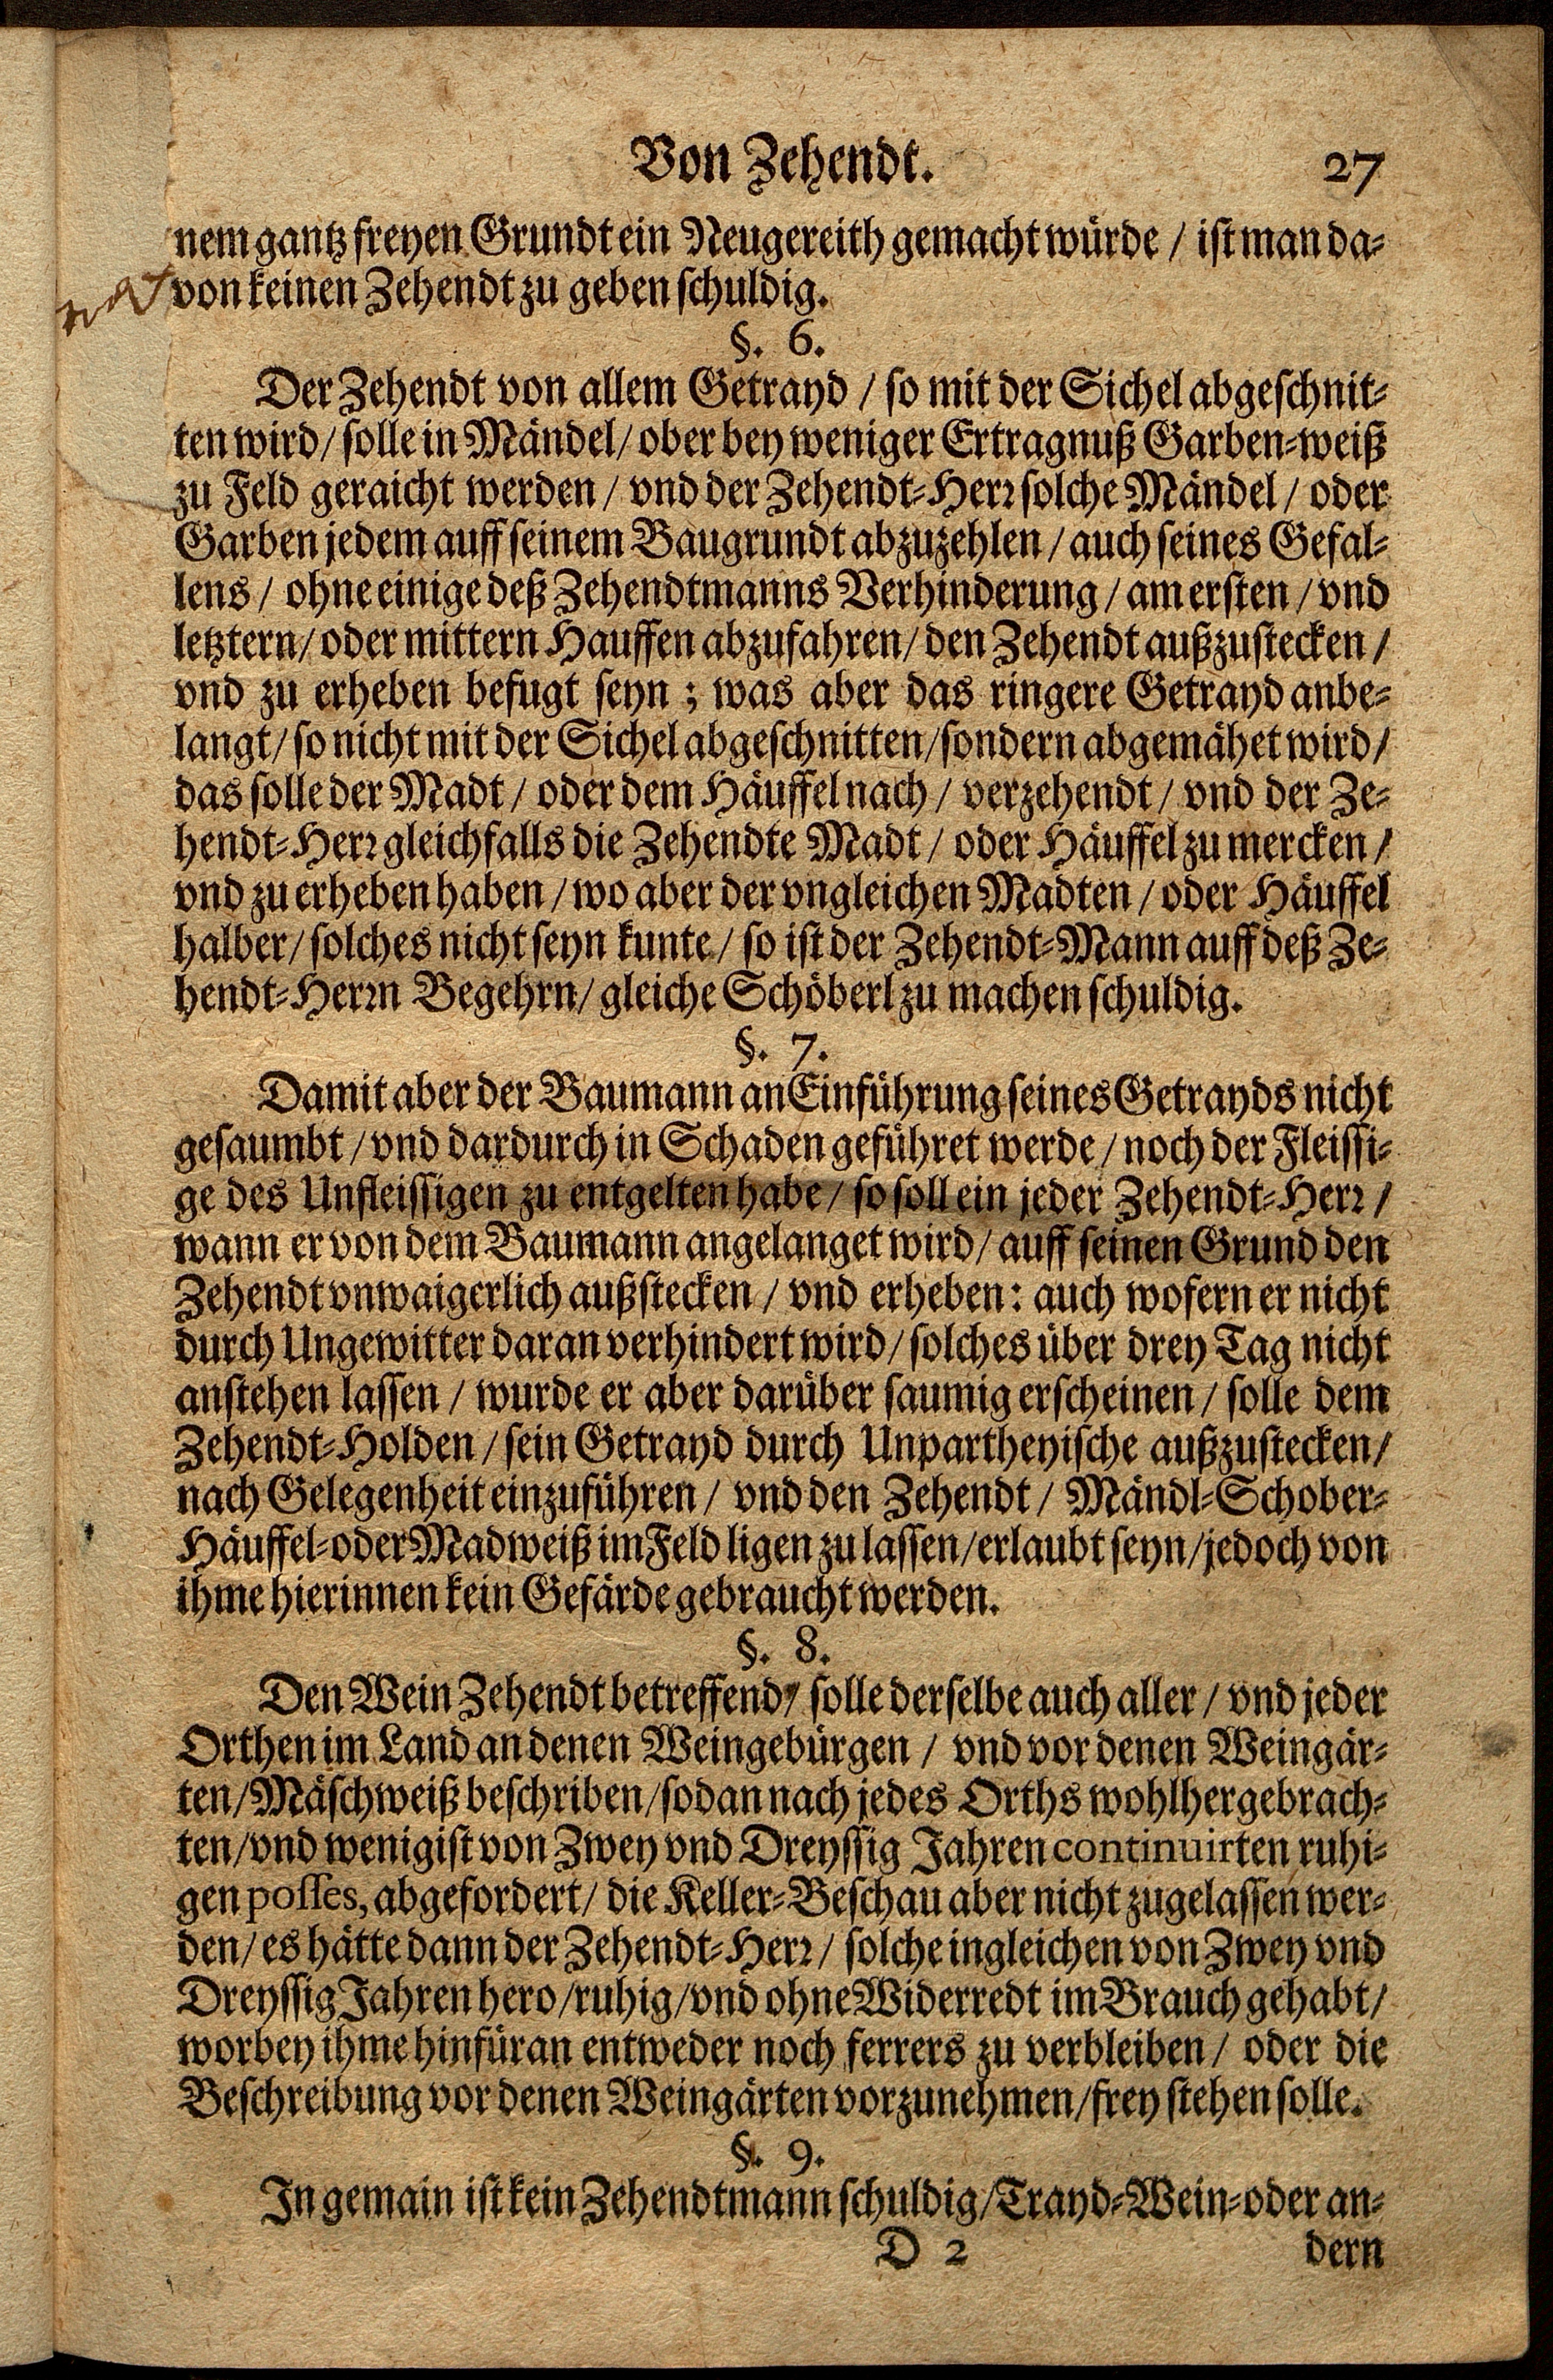 Von Zehendt. 27
nem gantz freyen Grundt ein Neugereith gemacht würde / ist man da-
von keinen Zehendt zu geben schuldig.
§. 6.
Der Zehendt von allem Getrayd / so mit der Sichel abgeschnit-
ten wird / solle in Mändel / ober bey weniger Ertragnuß Garben-weiß
zu Feld geraicht werden / vnd der Zehendt-Herr solche Mändel / oder
Garben jedem auff seinem Baugrundt abzuzehlen / auch seines Gefal-
lens / ohne einige deß Zehendtmanns Verhinderung / am ersten / vnd
letztern / oder mittern Hauffen abzufahren / den Zehendt außzustecken /
vnd zu erheben befugt seyn ; was aber das ringere Getrayd anbe-
langt / so nicht mit der Sichel abgeschnitten / sondern abgemähet wird /
das solle der Madt / oder dem Häuffel nach / verzehendt / vnd der Ze-
hendt-Herr gleichfalls die Zehendte Madt / oder Häuffel zu mercken /
vnd zu erheben haben / wo aber der vngleichen Madten / oder Häuffel
halber / solches nicht seyn kunte / so ist der Zehendt-Mann auff deß Ze-
hendt-Herrn Begehrn / gleiche Schöberl zu machen schuldig.
§. 7.
Damit aber der Baumann an Einführung seines Getrayds nicht
gesaumbt / vnd dardurch in Schaden geführet werde / noch der Fleissi-
ge des Unfleissigen zu entgelten habe / so soll ein jeder Zehendt-Herr /
wann er von dem Baumann angelanget wird / auff seinen Grund den
Zehendt vnwaigerlich außstecken / vnd erheben : auch wofern er nicht
durch Ungewitter daran verhindert wird / solches über drey Tag nicht
anstehen lassen / wurde er aber darüber saumig erscheinen / solle dem
Zehendt-Holden / sein Getrayd durch Unpartheyische außzustecken /
nach Gelegenheit einzuführen / vnd den Zehendt / Mändl-Schober-
Häuffel-oder Madweiß im Feld ligen zu lassen / erlaubt seyn / jedoch von
ihme hierinnen kein Gefärde gebraucht werden.
§. 8.
Den Wein Zehendt betreffend / solle derselbe auch aller / vnd jeder
Orthen im Land an denen Weingebürgen / vnd vor denen Weingär-
ten / Mäschweiß beschriben / sodan nach jedes Orths wohlhergebrach-
ten / vnd wenigist von Zwey vnd Dreyssig Jahren continuirten ruhi-
gen posses, abgefordert / die Keller-Beschau aber nicht zugelassen wer-
den / es hätte dann der Zehendt-Herr / solche ingleichen von Zwey vnd
Dreyssig Jahren hero / ruhig / vnd ohne Widerredt im Brauch gehabt /
worbey ihme hinfüran entweder noch ferrers zu verbleiben / oder die
Beschreibung vor denen Weingärten vorzunehmen / frey stehen solle.
§. 9.
In gemain ist kein Zehendtmann schuldig / Trayd-Wein-oder an-
D 2 dern